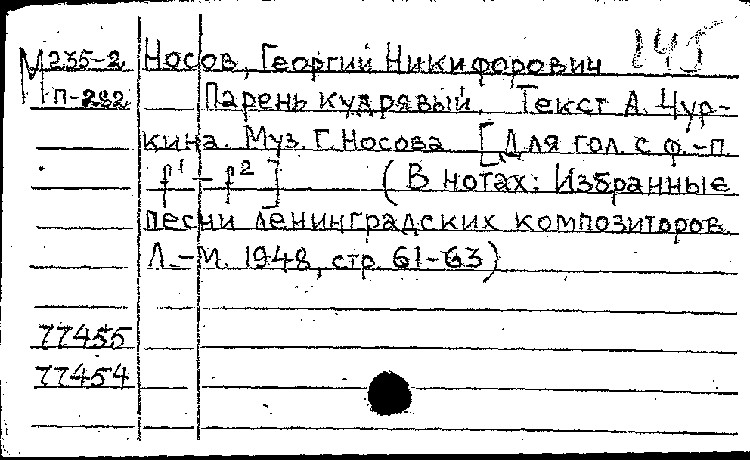 М 235-2 Носов, Георгий Никифорович 145
П-282 Парень кудрявый. Текст А. Чур-
кина. Муз. Г. Носова [Для гол. с ф.-п.
f¹ - f²] (В нотах: Избранные
песни ленинградских композиторов.
Л.-М. 1948, стр. 61-63)
77455
77454